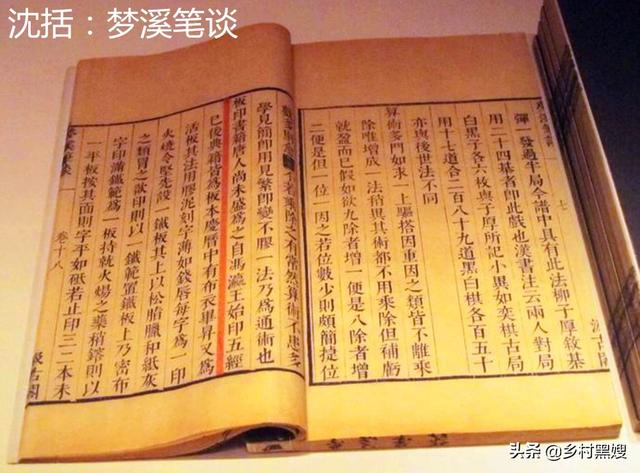 沈括：梦溪笔谈
彈一發過半局今譜中具有此法柳子厚敘棊
用二十四棊者即此戲也漢書注云兩人對局
白黑子各六枚與子厚所記小異如奕棋古局
用十七道合二百八十九道黑白棋各百五十
亦與後世法不同
算術多門如求一上驅搭因重因之類皆不離乘
除唯增成一法稍異其術都不用乘除但補虧
就盈而已假如欲九除者增一便是八除者增
二便是但一位一因之若位數少則頗簡捷位
乘除之有常然算術不患多
學見簡即用見繁即變不膠一法乃爲通術也
板印書籍唐人尚未盛爲之自馮瀛王始印五經
已後典籍皆爲板本慶曆中有布衣畢昇又爲
活板其法用膠泥刻字薄如錢唇每字爲一印
火燒令堅先設一鐵板其上以松脂臘和紙灰
之類冒之欲印則以一鐵範置鐵板上乃密布
字印滿鐵範爲一板持就火煬之藥稍鎔則以
一平板按其面則字平如砥若止印三二本未
卷十八
汲古閣
头条 @乡村黑嫂